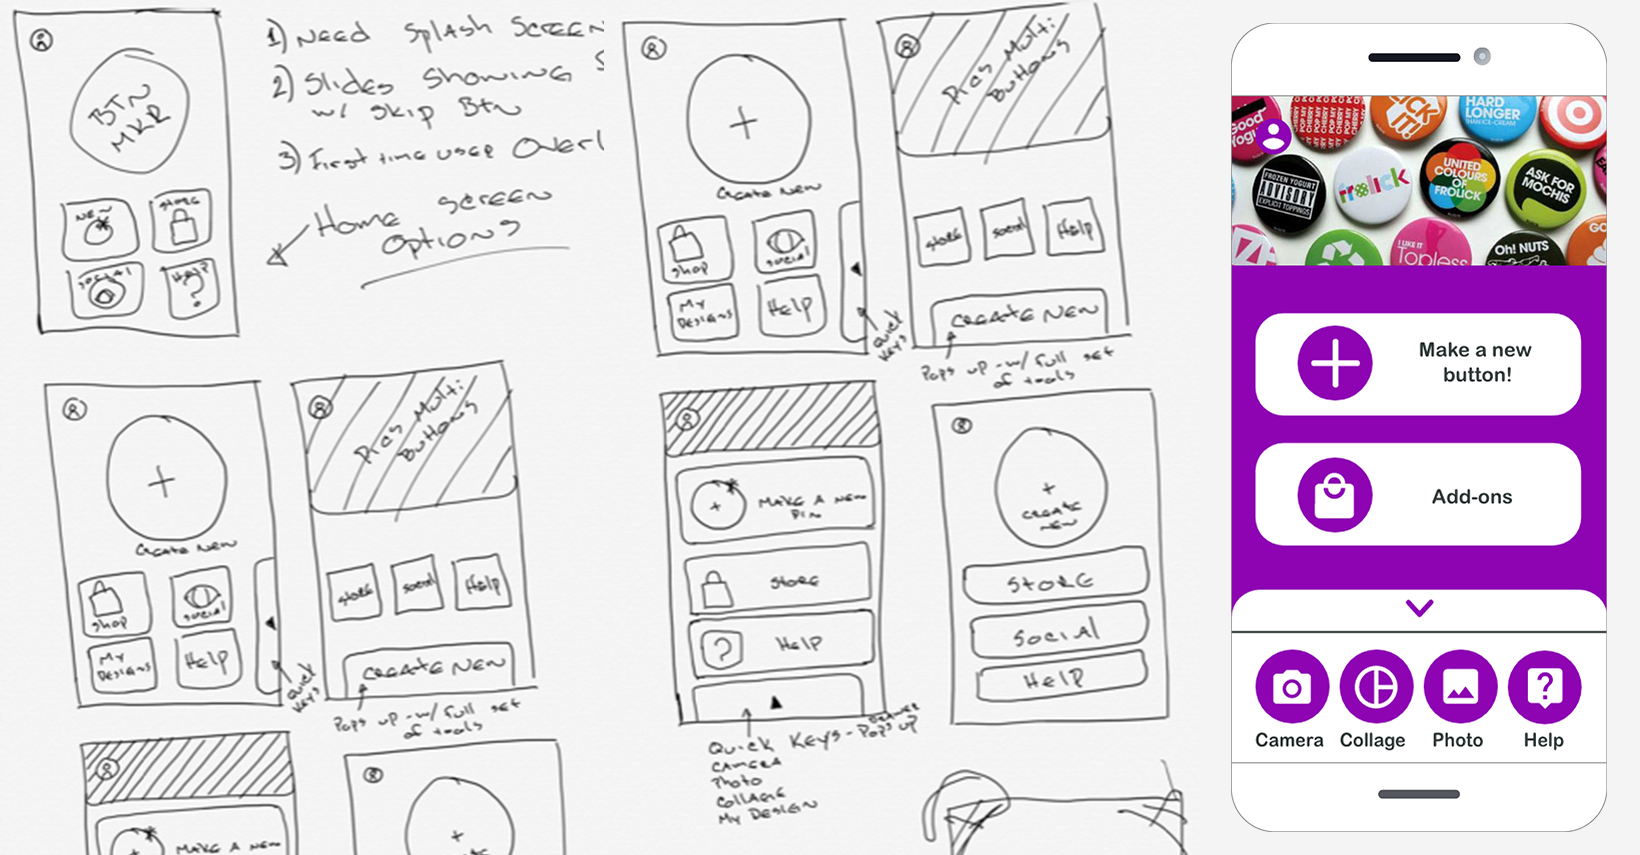 BTN
MKR
NEW
STORE
SOCIAL
HELP?
1) NEED SPLASH SCREEN
2) SLIDES SHOWING
w/ SKIP BTN
3) FIRST TIME USER OVERL
HOME SCREEN
OPTIONS
+
CREATE NEW
SHOP
SOCIAL
MY
DESIGNS
HELP
QUICK
KEYS
PICS MULTI
BUTTONS
STORE
SOCIAL
HELP
CREATE NEW
POPS UP - w/ FULL SET
OF TOOLS
+
CREATE NEW
SHOP
SOCIAL
MY
DESIGNS
HELP
QUICK
KEYS
PICS MULTI
BUTTONS
STORE
SOCIAL
HELP
CREATE NEW
POPS UP - w/ FULL SET
OF TOOLS
MAKE A NEW
+
+
MAKE A NEW
PIN
STORE
?
HELP
QUICK KEYS - DRAWER POPS UP
CAMERA
PHOTO
COLLAGE
MY DESIGN
+
CREATE
NEW
STORE
SOCIAL
HELP
Good
POP MY CHERRY
HARD
LONGER
THAN ICE-CREAM
FROZEN YOGURT
ADVISORY
EXPLICIT TOPPINGS
frolick
UNITED
COLOURS
OF
FROLICK
ASK FOR
MOCHIS
I LIKE IT
Topless
Oh! NUTS
GO
Make a new
button!
Add-ons
Camera
Collage
Photo
Help